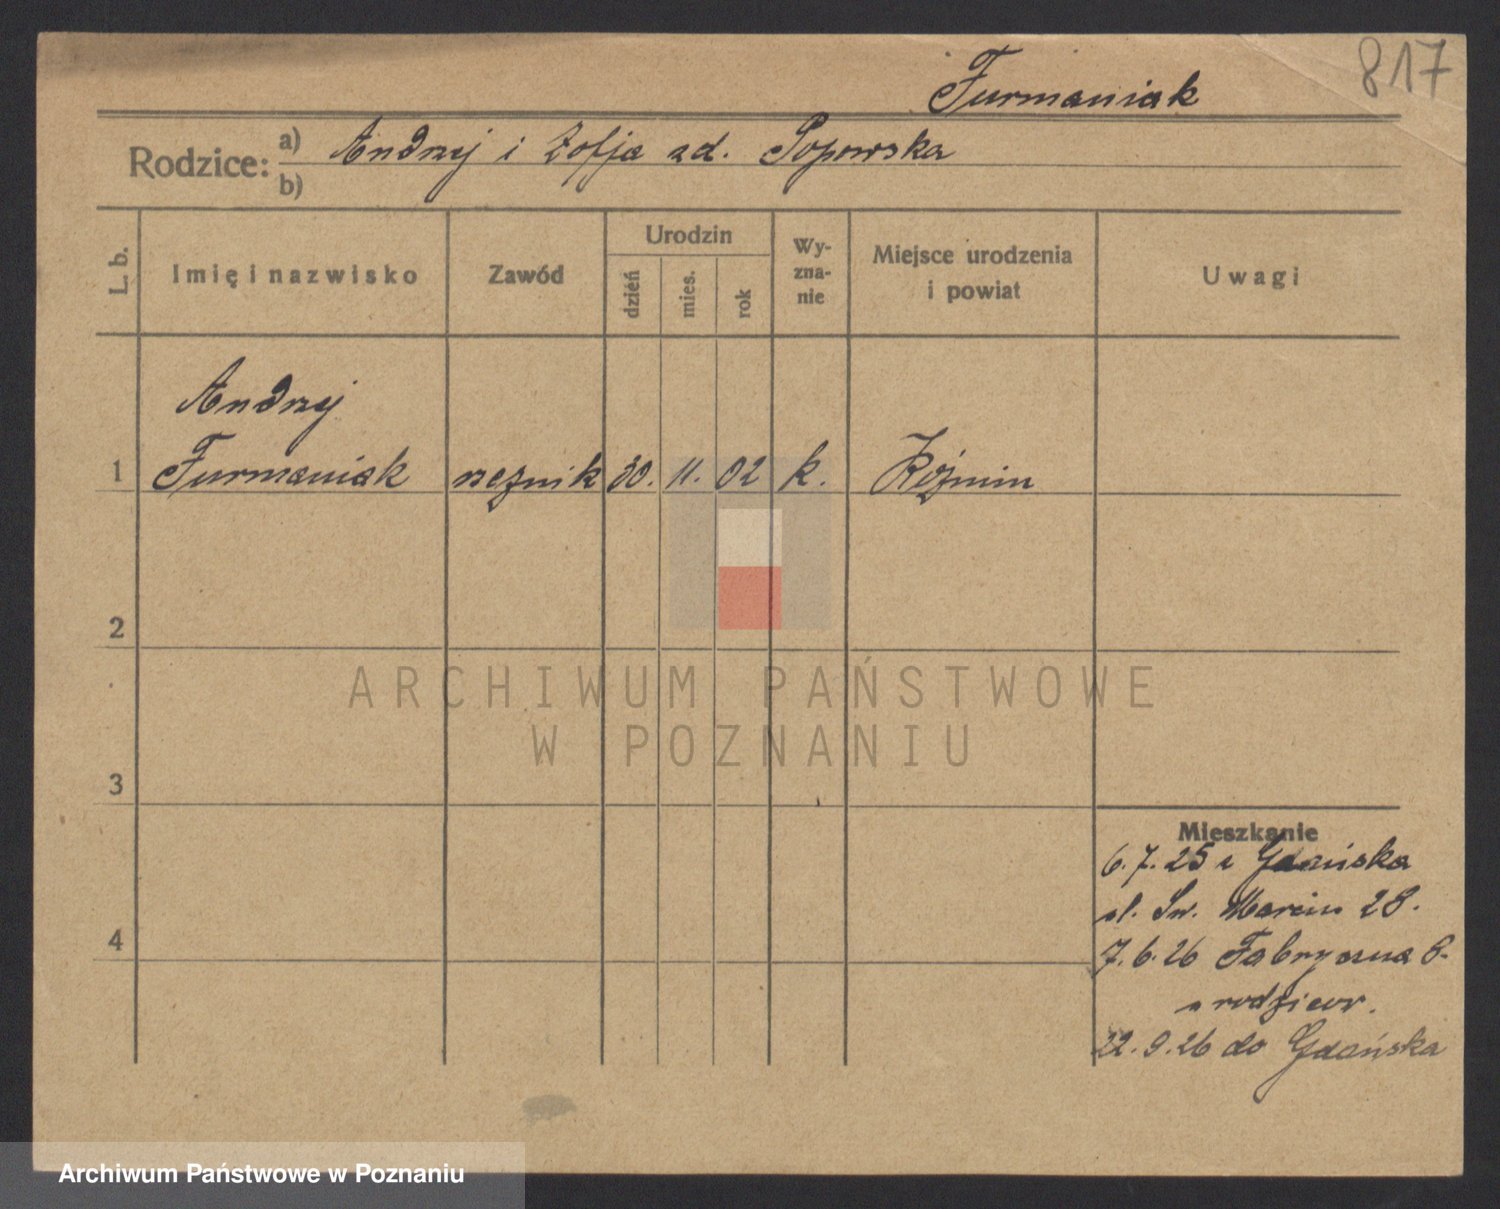 817
Furmaniak
Rodzice: a) Andrzej i Zofja zd. Popowska
b)
L. b. Imię i nazwisko Zawód Urodzin dzień mies. rok Wy-zna-nie Miejsce urodzenia i powiat Uwagi
Andrzej
1 Furmaniak rzeźnik 30. 11. 02 k. Koźmin
2
ARCHIWUM PAŃSTWOWE
W POZNANIU
3
Mieszkanie
6.7.25 z Gdańska
ul. Św. Marcin 28.
4
7.6.26 Fabryczna 8.
u rodziców.
22.9.26 do Gdańska
Archiwum Państwowe w Poznaniu